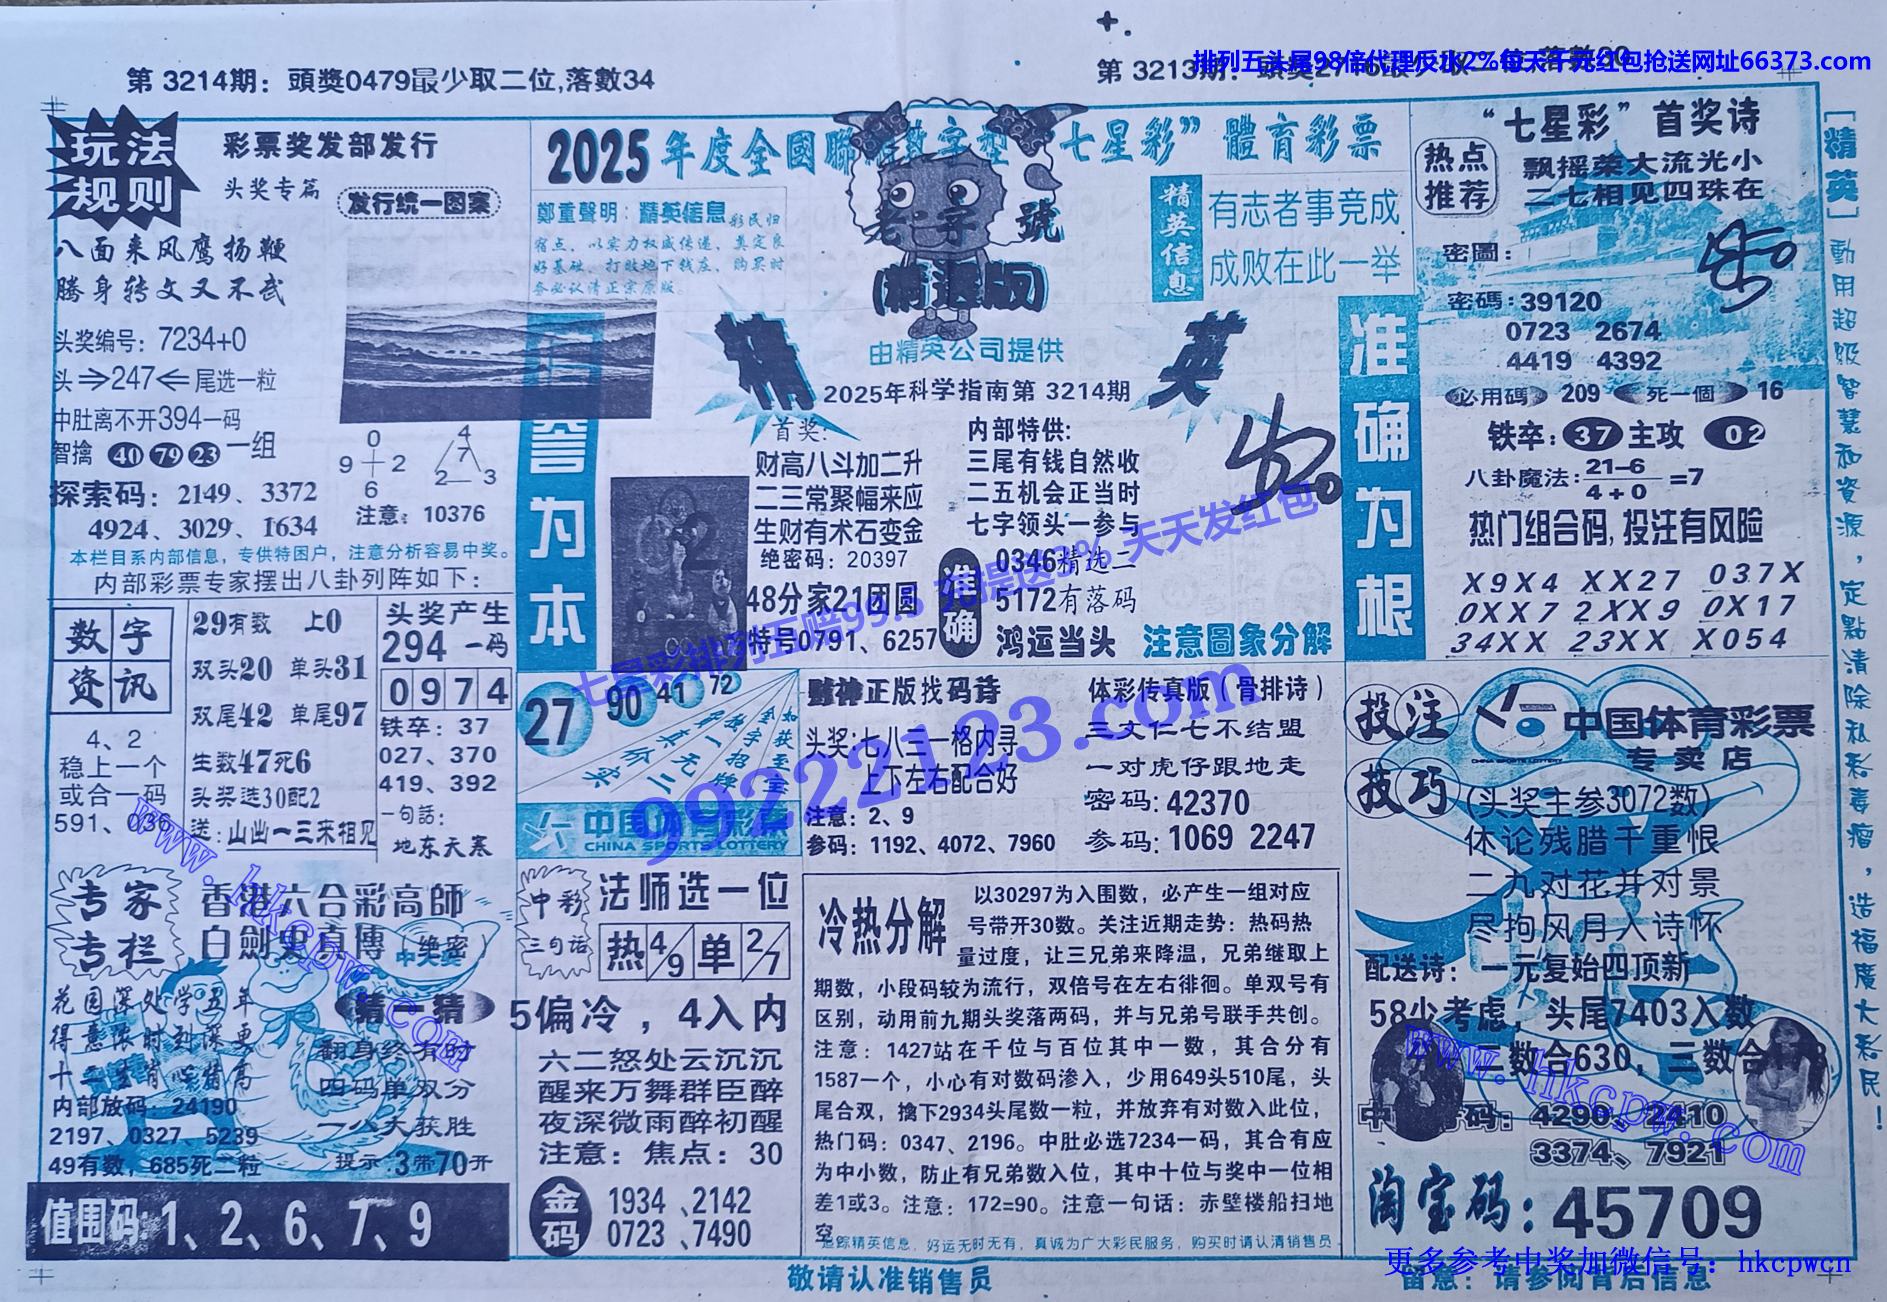 第 3214期：頭獎0479最少取二位,落數34
排列五头尾98倍代理反水2%每天千元红包抢送网址66373.com
第 3213期：
玩法规则
彩票奖发部发行
头奖专篇
发行统一图案
八面来风鹰扬鞭
腾身转文又不武
头奖编号：7234+0
头⇒247⇐尾选一粒
中肚离不开394一码
智擒 40 79 23 一组
0
9 2
6
4
7
2 3
探索码：2149、3372
4924、3029、1634
注意：10376
本栏目系内部信息，专供特困户，注意分析容易中奖。
内部彩票专家摆出八卦列阵如下：
数字资讯
4、2
稳上一个
或合一码
591、036
29有数 上0
双头20 单头31
双尾42 单尾97
生数47死6
头奖选30配2
送：山幽一三来相见
头奖产生
294 一码
0974
铁卒：37
027、370
419、392
一句話：
地东天寒
专家专栏
香港六合彩高師
白劍史真傳（绝密）
花园深处学五年
得意浓时到深更
十二生肖心精高
内部放码：24190
2197、0327、5239
49有数，685死二粒
猜一猜
翻身终有时
四码单双分
一八大获胜
提示：3带70开
值围码：1、2、6、7、9
2025年度全國聯 “七星彩”體育彩票
鄭重聲明：精英信息彩民归
宿点，以实力权威传递，奠定良
好基础，打败地下钱庄，购买时
务必认清正宗原版。
老字號
(精選版)
精英信息
有志者事竞成
成败在此一举
精英
由精英公司提供
2025年科学指南第 3214期
誉为本
准确为根
首奖：
财高八斗加二升
二三常聚幅来应
生财有术石变金
绝密码：20397
48分家21团圆
特号0791、6257
内部特供：
三尾有钱自然收
二五机会正当时
七字领头一参与
准确
0346精选二
5172有落码
鸿运当头 注意圖象分解
七星彩排列五赔99.5 充提送3% 天天发红包
99222123.com
27 90 41 72
中国体育彩票
CHINA SPORTS LOTTERY
财神正版找码诗
头奖：七八三一格内寻
上下左右配合好
注意：2、9
参码：1192、4072、7960
体彩传真版（骨排诗）
三文仁七不结盟
一对虎仔跟地走
密码：42370
参码：1069 2247
中彩三句话
法师选一位
热4/9单2/7
5偏冷，4入内
六二怒处云沉沉
醒来万舞群臣醉
夜深微雨醉初醒
注意：焦点：30
金码
1934、2142
0723、7490
冷热分解
以30297为入围数，必产生一组对应
号带开30数。关注近期走势：热码热
量过度，让三兄弟来降温，兄弟继取上
期数，小段码较为流行，双倍号在左右徘徊。单双号有
区别，动用前九期头奖落两码，并与兄弟号联手共创。
注意：1427站在千位与百位其中一数，其合分有
1587一个，小心有对数码渗入，少用649头510尾，头
尾合双，擒下2934头尾数一粒，并放弃有对数入此位，
热门码：0347、2196。中肚必选7234一码，其合有应
为中小数，防止有兄弟数入位，其中十位与奖中一位相
差1或3。注意：172=90。注意一句话：赤壁楼船扫地
空。
追踪精英信息，好运无时无有，真诚为广大彩民服务，购买时请认清销售员
敬请认准销售员
“七星彩”首奖诗
热点推荐
飘摇荣大流光小
二七相见四珠在
密圖：
密碼：39120
0723 2674
4419 4392
必用碼 209 死一個 16
铁卒：37 主攻 02
八卦魔法：21-6/4+0=7
热门组合码,投注有风险
X9X4 XX27 037X
0XX7 2XX9 0X17
34XX 23XX X054
投注技巧
中国体育彩票
CHINA SPORTS LOTTERY
专卖店
(头奖主参3072数)
休论残腊千重恨
二九对花并对景
尽拘风月入诗怀
配送诗：一元复始四顶新
58少考虑，头尾7403入数
二数合630，三数合
码：4296、2410
3374、7921
淘宝码：45709
更多参考中奖加微信号：hkcpwcn
留意：请参阅背后信息
[精英]動用超級智慧和資源，定點清除私彩毒瘤，造福廣大彩民！
www.hkcpw.com
www.hkcpw.com